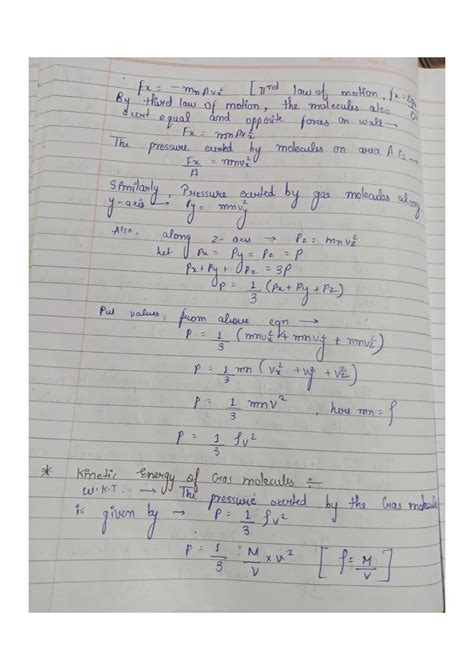 Fx = - mnAvx² [IInd law of motion,
By third law of motion, the molecules also
exert equal and opposite forces on wall →
Fx = mnAvx²
The pressure exerted by molecules on area A is →
Fx/A = mnvx²
Similarly, Pressure exerted by gas molecules along
y-axis → Py = mnvy²
Also, along z-axis → Pz = mnvz²
let Px = Py = Pz = P
Px + Py + Pz = 3P
P = 1/3 (Px + Py + Pz)
Put values from above eqn →
P = 1/3 (mnvx² + mnvy² + mnvz²)
P = 1/3 mn (vx² + vy² + vz²)
P = 1/3 mnv² , here mn = ρ
P = 1/3 ρv²
* Kinetic Energy of Gas molecules :-
W.K.T. → The pressure exerted by the Gas molecule
is given by → P = 1/3 ρv²
P = 1/3 M/V × v² [ρ = M/V]